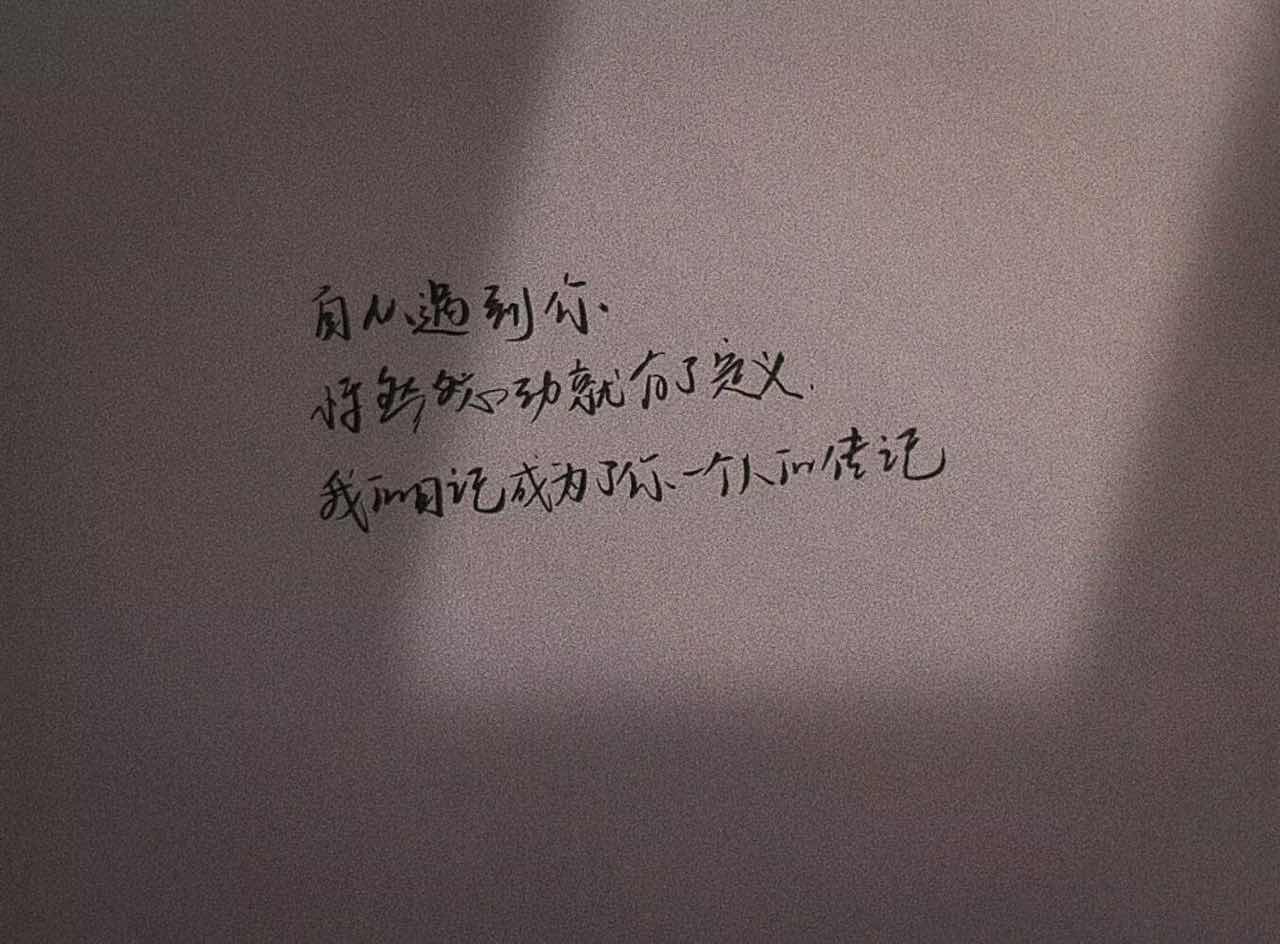 自从遇到你.
怦然心动就有了定义.
我的日记成为了你一个人的传记